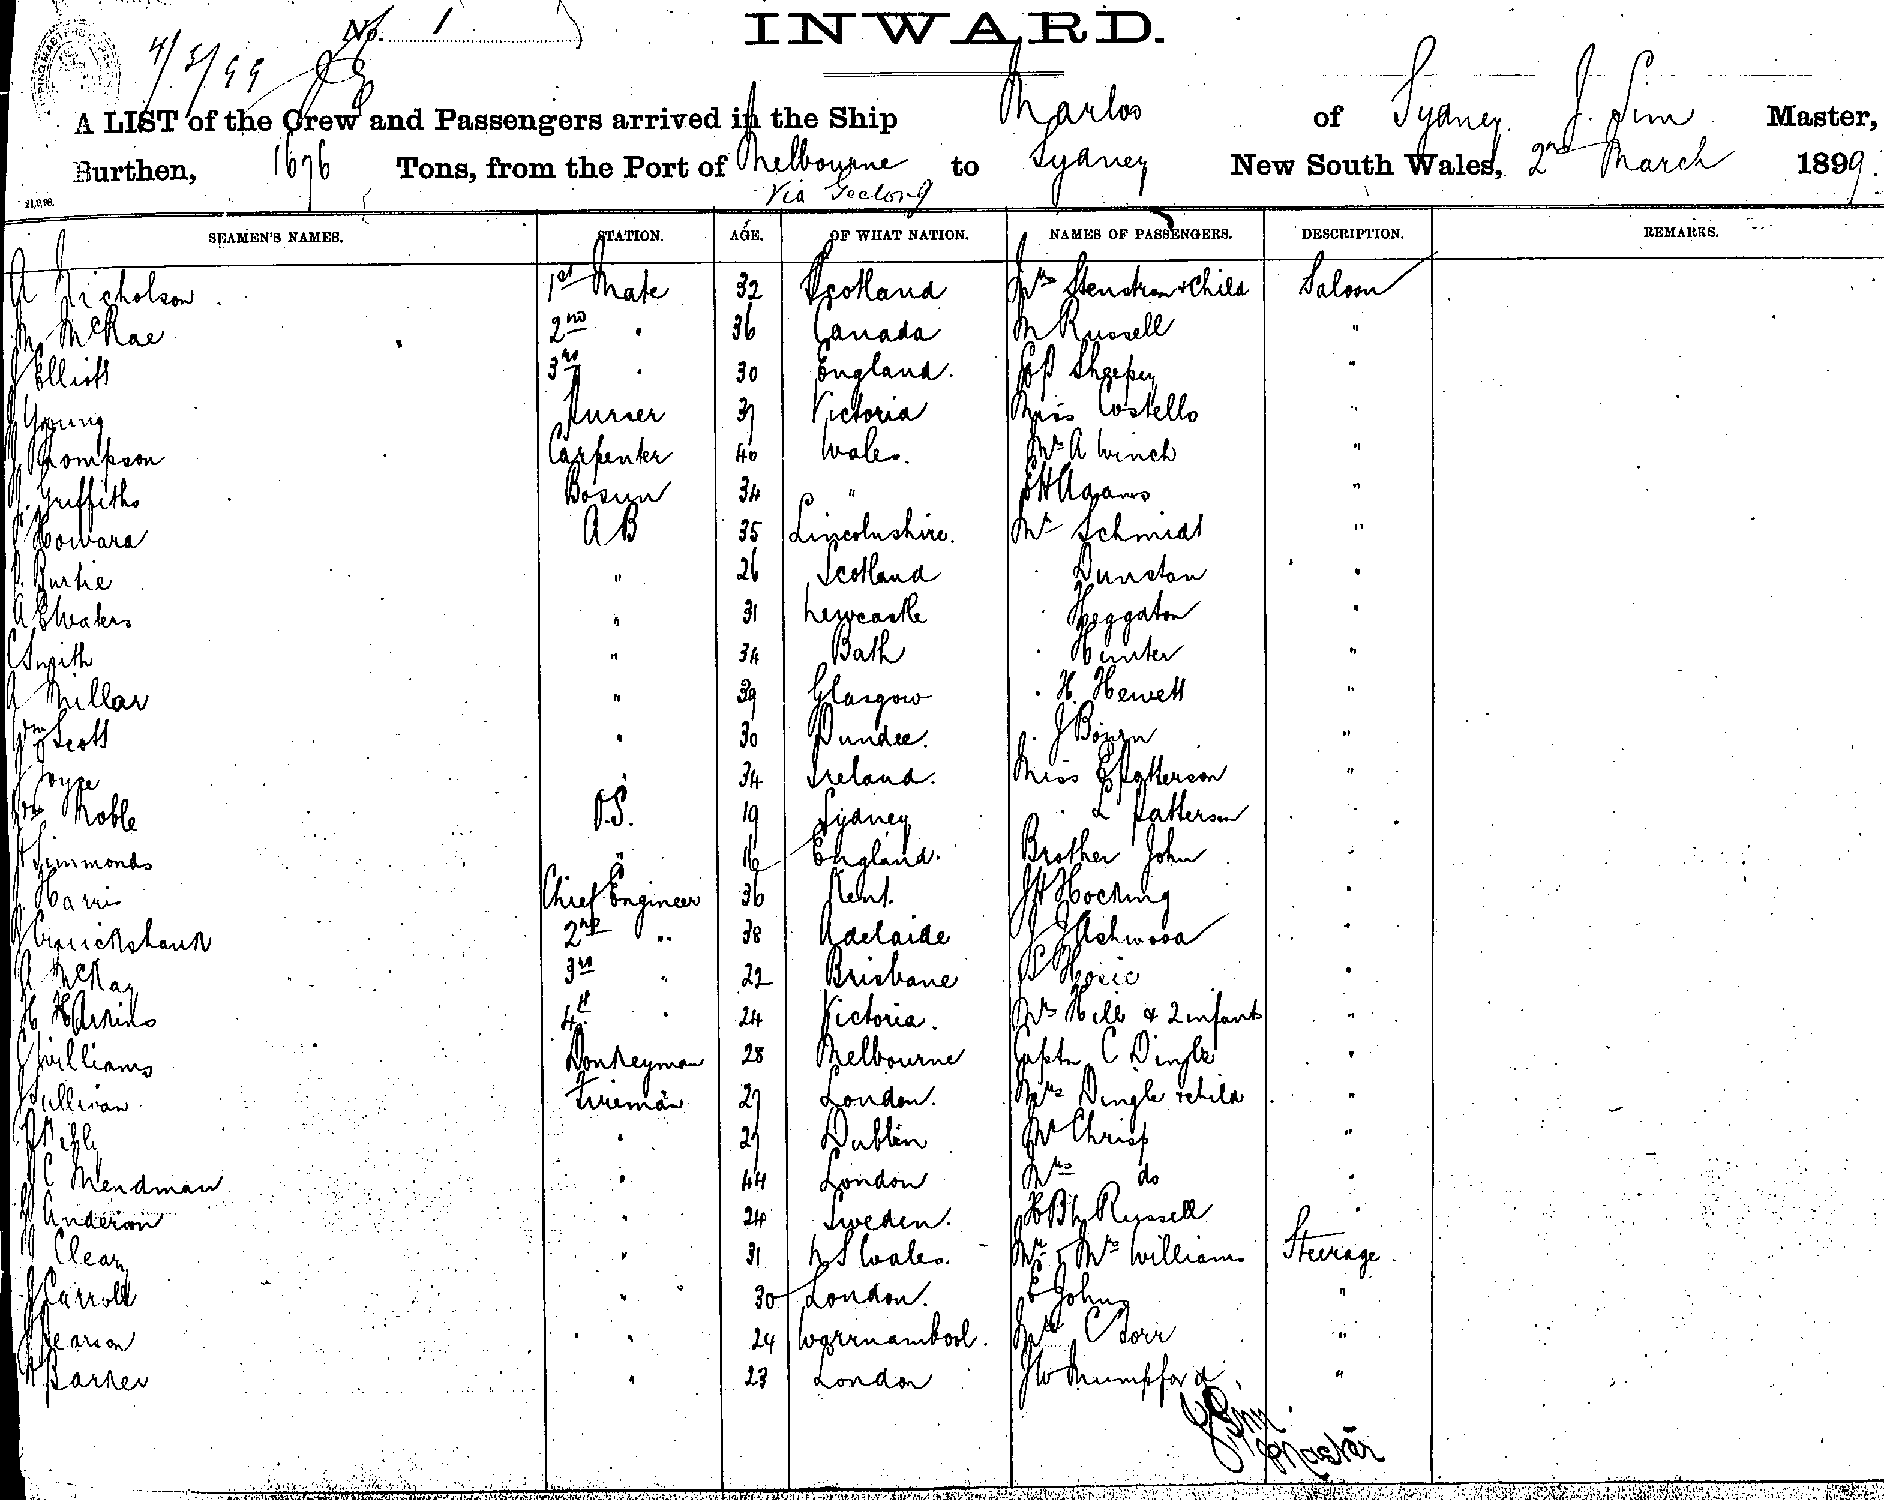 No. 1
INWARD.
4/3/99
A LIST of the Crew and Passengers arrived in the Ship Marloo of Sydney J. Sim Master,
Burthen, 1676 Tons, from the Port of Melbourne to Sydney New South Wales, 2nd March 1899.
Via Geelong
21,9,98.
SEAMEN'S NAMES. STATION. AGE. OF WHAT NATION. NAMES OF PASSENGERS. DESCRIPTION. REMARKS.
A Nicholson 1st Mate 32 Scotland Mrs & Child Saloon
M McRae 2nd " 36 Canada M Russell "
J Elliott 3rd " 30 England. "
Young Purser 37 Victoria Miss Costello "
Thompson Carpenter 40 Wales. Mr A Winch "
Griffiths Bosun 34 " E H Adams "
Howard A B 35 Lincolnshire. Mr Schmidt "
" 26 Scotland Dunstan "
A " 31 Newcastle Heggaton "
C Smith " 34 Bath " Hunter "
Millar " 39 Glasgow " H. Hewett "
Wm Scott " 30 Dundee. " J "
J Joyce " 34 Ireland. Miss E Patterson "
Noble O.S. 19 Sydney " L Patterson "
Simmonds " 16 England. Brother John "
Harris Chief Engineer 36 Kent. J H Hocking "
Cruickshank 2nd " 38 Adelaide J Ashwood "
A McKay 3rd " 22 Brisbane "
H 4th " 24 Victoria. Mrs Hill & 2 infants "
Williams Donkeyman 28 Melbourne Captn C Dingle "
J Sullivan Fireman 27 London. Mrs Dingle & child "
" 27 Dublin Mr Chrisp "
C Mendman " 44 London Mrs do "
Anderson " 24 Sweden. Russell "
Cleary " 31 N S Wales. Mr & Mrs Williams Steerage
J Carroll " 30 London. E Johns "
Pearson " 24 Warrnambool. C Torr "
Barker " 23 London J W Mumpford "
J Sim
Master